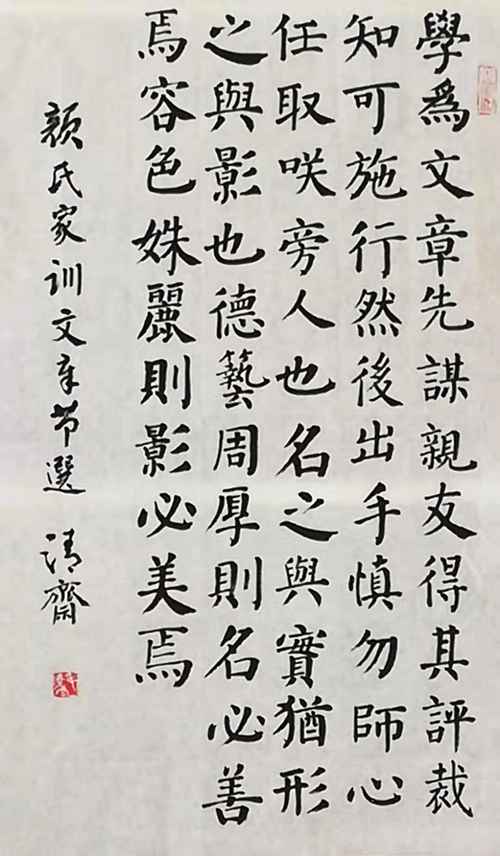 學爲文章先謀親友得其評裁
知可施行然後出手慎勿師心
任取咲旁人也名之與實猶形
之與影也德藝周厚則名必善
焉容色姝麗則影必美焉
顏氏家训文章节選 清齋